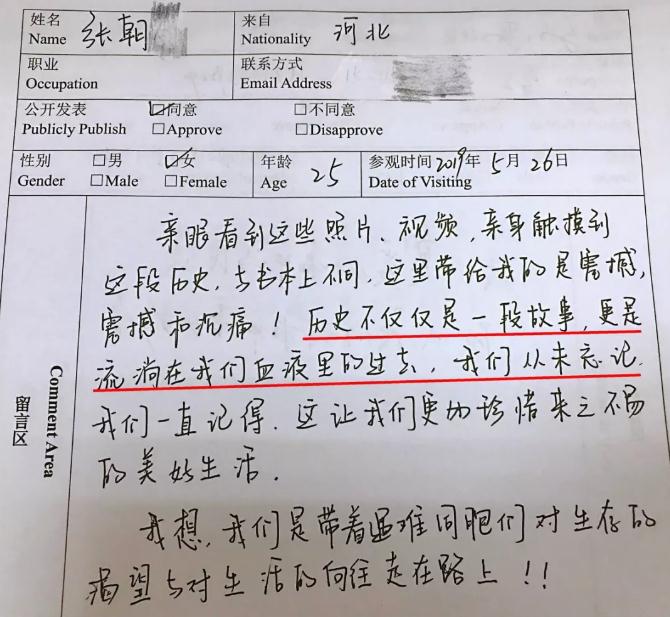 姓名 张朝 来自 河北
Name Nationality
职业 联系方式
Occupation Email Address
公开发表 ☑同意 □不同意
Publicly Publish □Approve □Disapprove
性别 □男 ☑女 年龄 25 参观时间 2019年5月26日
Gender □Male □Female Age Date of Visiting
留言区
Comment Area
亲眼看到这些照片、视频,亲身触摸到
这段历史,与书本上不同,这里带给我的是震撼,
震撼和沉痛!历史不仅仅是一段故事,更是
流淌在我们血液里的过去,我们从未忘记.
我们一直记得.这让我们更加珍惜来之不易
的美好生活.
我想,我们是带着遇难同胞们对生存的
渴望与对生活的向往走在路上!!